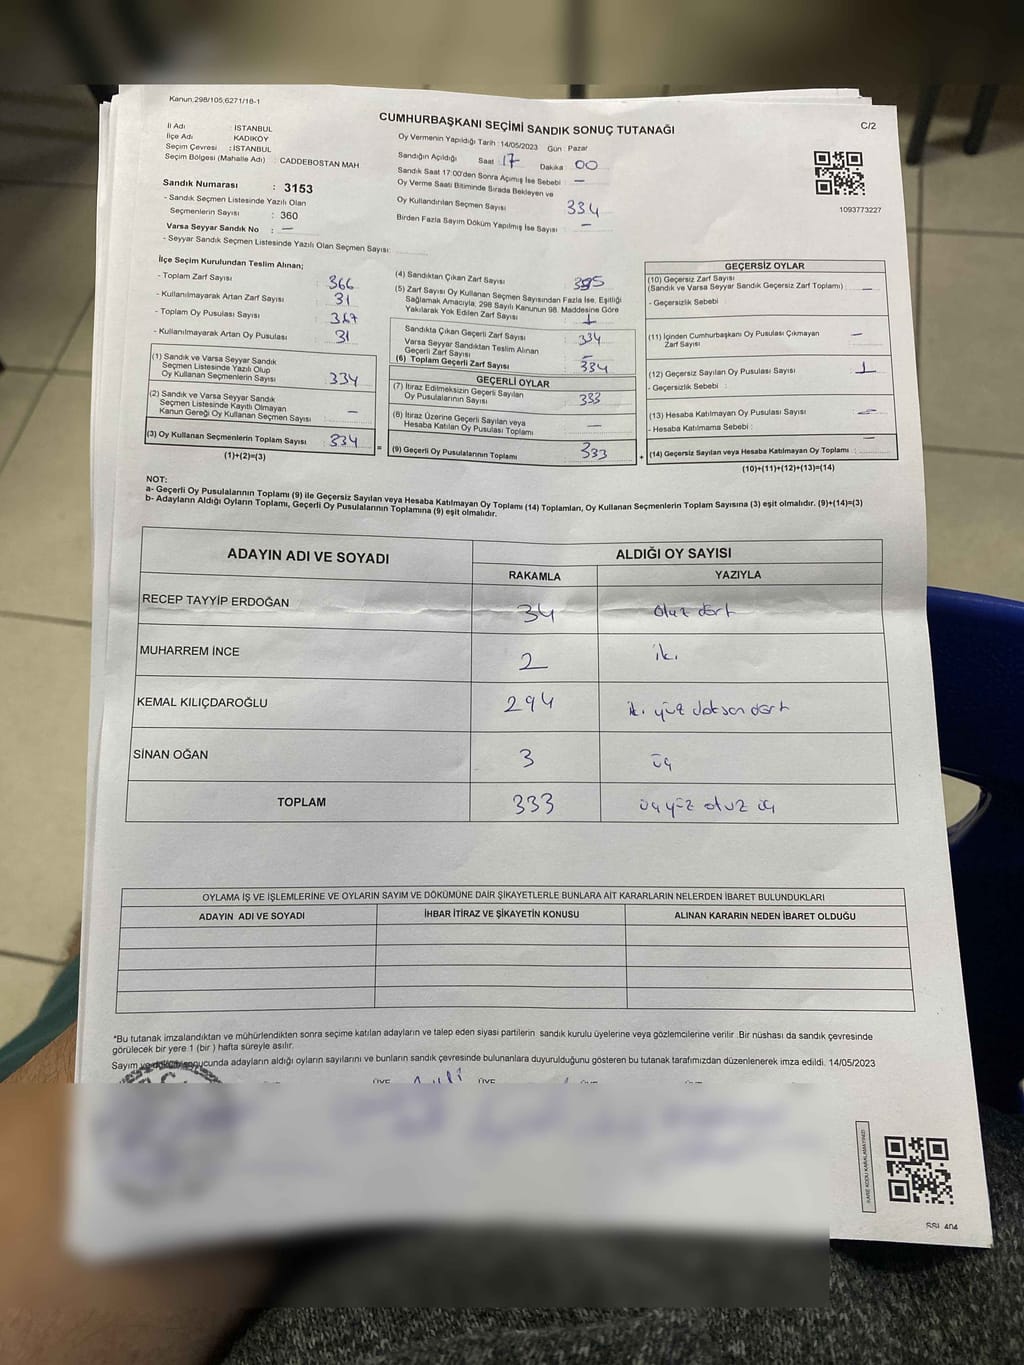 Kanun:298/105,6271/18-1
CUMHURBAŞKANI SEÇİMİ SANDIK SONUÇ TUTANAĞI
C/2
İl Adı İSTANBUL
İlçe Adı KADIKÖY
Seçim Çevresi : İSTANBUL
Seçim Bölgesi (Mahalle Adı) : CADDEBOSTAN MAH
Sandık Numarası : 3153
- Sandık Seçmen Listesinde Yazılı Olan
Seçmenlerin Sayısı : 360
Varsa Seyyar Sandık No : —
- Seyyar Sandık Seçmen Listesinde Yazılı Olan Seçmen Sayısı:
Oy Vermenin Yapıldığı Tarih :14/05/2023 Gün : Pazar
Sandığın Açıldığı Saat 17 Dakika 00
Sandık Saat 17:00'den Sonra Açımış İse Sebebi : —
Oy Verme Saati Bitiminde Sırada Bekleyen ve
Oy Kullandırılan Seçmen Sayısı : 334
Birden Fazla Sayım Döküm Yapılmış İse Sayısı : —
1093773227
İlçe Seçim Kurulundan Teslim Alınan;
- Toplam Zarf Sayısı : 366
- Kullanılmayarak Artan Zarf Sayısı : 31
- Toplam Oy Pusulası Sayısı : 367
- Kullanılmayarak Artan Oy Pusulası : 31
(1) Sandık ve Varsa Seyyar Sandık
Seçmen Listesinde Yazılı Olup
Oy Kullanan Seçmenlerin Sayısı : 334
(2) Sandık ve Varsa Seyyar Sandık
Seçmen Listesinde Kayıtlı Olmayan
Kanun Gereği Oy Kullanan Seçmen Sayısı : —
(3) Oy Kullanan Seçmenlerin Toplam Sayısı : 334
(1)+(2)=(3)
=
(4) Sandıktan Çıkan Zarf Sayısı : 335
(5) Zarf Sayısı Oy Kullanan Seçmen Sayısından Fazla İse, Eşitliği
Sağlamak Amacıyla, 298 Sayılı Kanunun 98. Maddesine Göre
Yakılarak Yok Edilen Zarf Sayısı : 1
Sandıkta Çıkan Geçerli Zarf Sayısı : 334
Varsa Seyyar Sandıktan Teslim Alınan
Geçerli Zarf Sayısı : —
(6) Toplam Geçerli Zarf Sayısı : 334
GEÇERLİ OYLAR
(7) İtiraz Edilmeksizin Geçerli Sayılan
Oy Pusulalarının Sayısı : 333
(8) İtiraz Üzerine Geçerli Sayılan veya
Hesaba Katılan Oy Pusulası Toplamı : —
(9) Geçerli Oy Pusulalarının Toplamı : 333
+
GEÇERSİZ OYLAR
(10) Geçersiz Zarf Sayısı
(Sandık ve Varsa Seyyar Sandık Geçersiz Zarf Toplamı) : —
- Geçersizlik Sebebi :
(11) İçinden Cumhurbaşkanı Oy Pusulası Çıkmayan
Zarf Sayısı : —
(12) Geçersiz Sayılan Oy Pusulası Sayısı : 1
- Geçersizlik Sebebi :
(13) Hesaba Katılmayan Oy Pusulası Sayısı : —
- Hesaba Katılmama Sebebi :
(14) Geçersiz Sayılan veya Hesaba Katılmayan Oy Toplamı : —
(10)+(11)+(12)+(13)=(14)
NOT:
a- Geçerli Oy Pusulalarının Toplamı (9) ile Geçersiz Sayılan veya Hesaba Katılmayan Oy Toplamı (14) Toplamları, Oy Kullanan Seçmenlerin Toplam Sayısına (3) eşit olmalıdır. (9)+(14)=(3)
b- Adayların Aldığı Oyların Toplamı, Geçerli Oy Pusulalarının Toplamına (9) eşit olmalıdır.
ADAYIN ADI VE SOYADI ALDIĞI OY SAYISI
RAKAMLA YAZIYLA
RECEP TAYYİP ERDOĞAN 34 otuz dört
MUHARREM İNCE 2 iki
KEMAL KILIÇDAROĞLU 294 iki yüz doksan dört
SİNAN OĞAN 3 üç
TOPLAM 333 üçyüz otuz üç
OYLAMA İŞ VE İŞLEMLERİNE VE OYLARIN SAYIM VE DÖKÜMÜNE DAİR ŞİKAYETLERLE BUNLARA AİT KARARLARIN NELERDEN İBARET BULUNDUKLARI
ADAYIN ADI VE SOYADI İHBAR İTİRAZ VE ŞİKAYETİN KONUSU ALINAN KARARIN NEDEN İBARET OLDUĞU
*Bu tutanak imzalandıktan ve mühürlendikten sonra seçime katılan adayların ve talep eden siyasi partilerin sandık kurulu üyelerine veya gözlemcilerine verilir. Bir nüshası da sandık çevresinde
görülecek bir yere 1 (bir ) hafta süreyle asılır.
Sayım ve döküm sonucunda adayların aldığı oyların sayılarını ve bunların sandık çevresinde bulunanlara duyurulduğunu gösteren bu tutanak tarafımızdan düzenlenerek imza edildi. 14/05/2023
ÜYE ÜYE ÜYE ÜYE ÜYE
KARE KODU KARALAMAYINIZ!